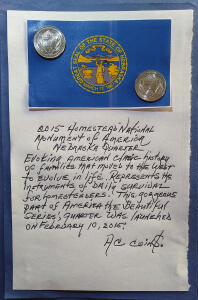 GREAT SEAL OF THE STATE OF NEBRASKA
MARCH 1ST 1867
2015 HOMESTEAD NATIONAL
MONUMENT OF AMERICA
NEBRASKA QUARTER
EVOKING AMERICAN CLASSIC HISTORY
OF FAMILIES THAT MOVED TO THE WEST
TO EVOLVE IN LIFE. REPRESENTS THE
INSTRUMENTS OF DAILY SURVIVAL
FOR HOMESTEADERS. THIS GORGEOUS
PART OF AMERICA THE BEAUTIFUL
SERIES, QUARTER WAS LAUNCHED
ON FEBRUARY 10, 2015.
AC COIN$.